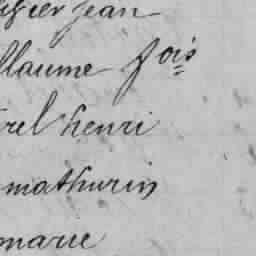 jean
llaume fois
rel henri
mathurin
marie